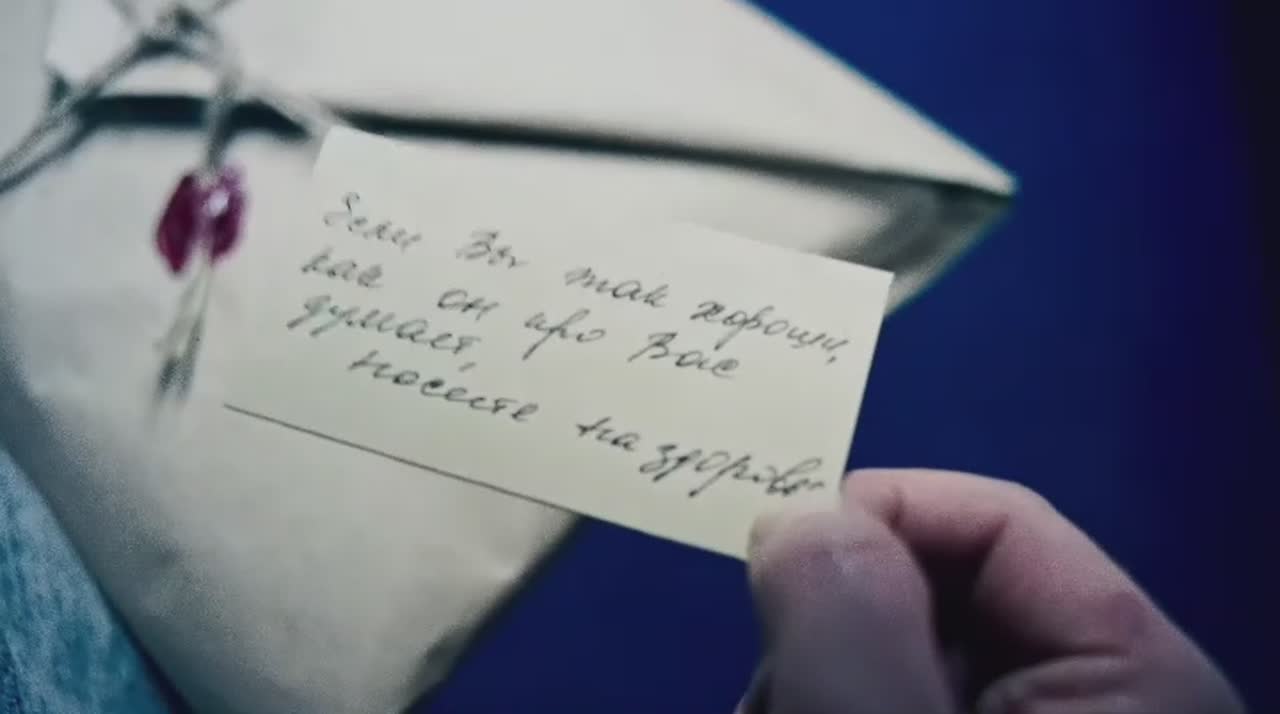 Если Вы так хороши,
как он про Вас
думает,
носите на здоровье